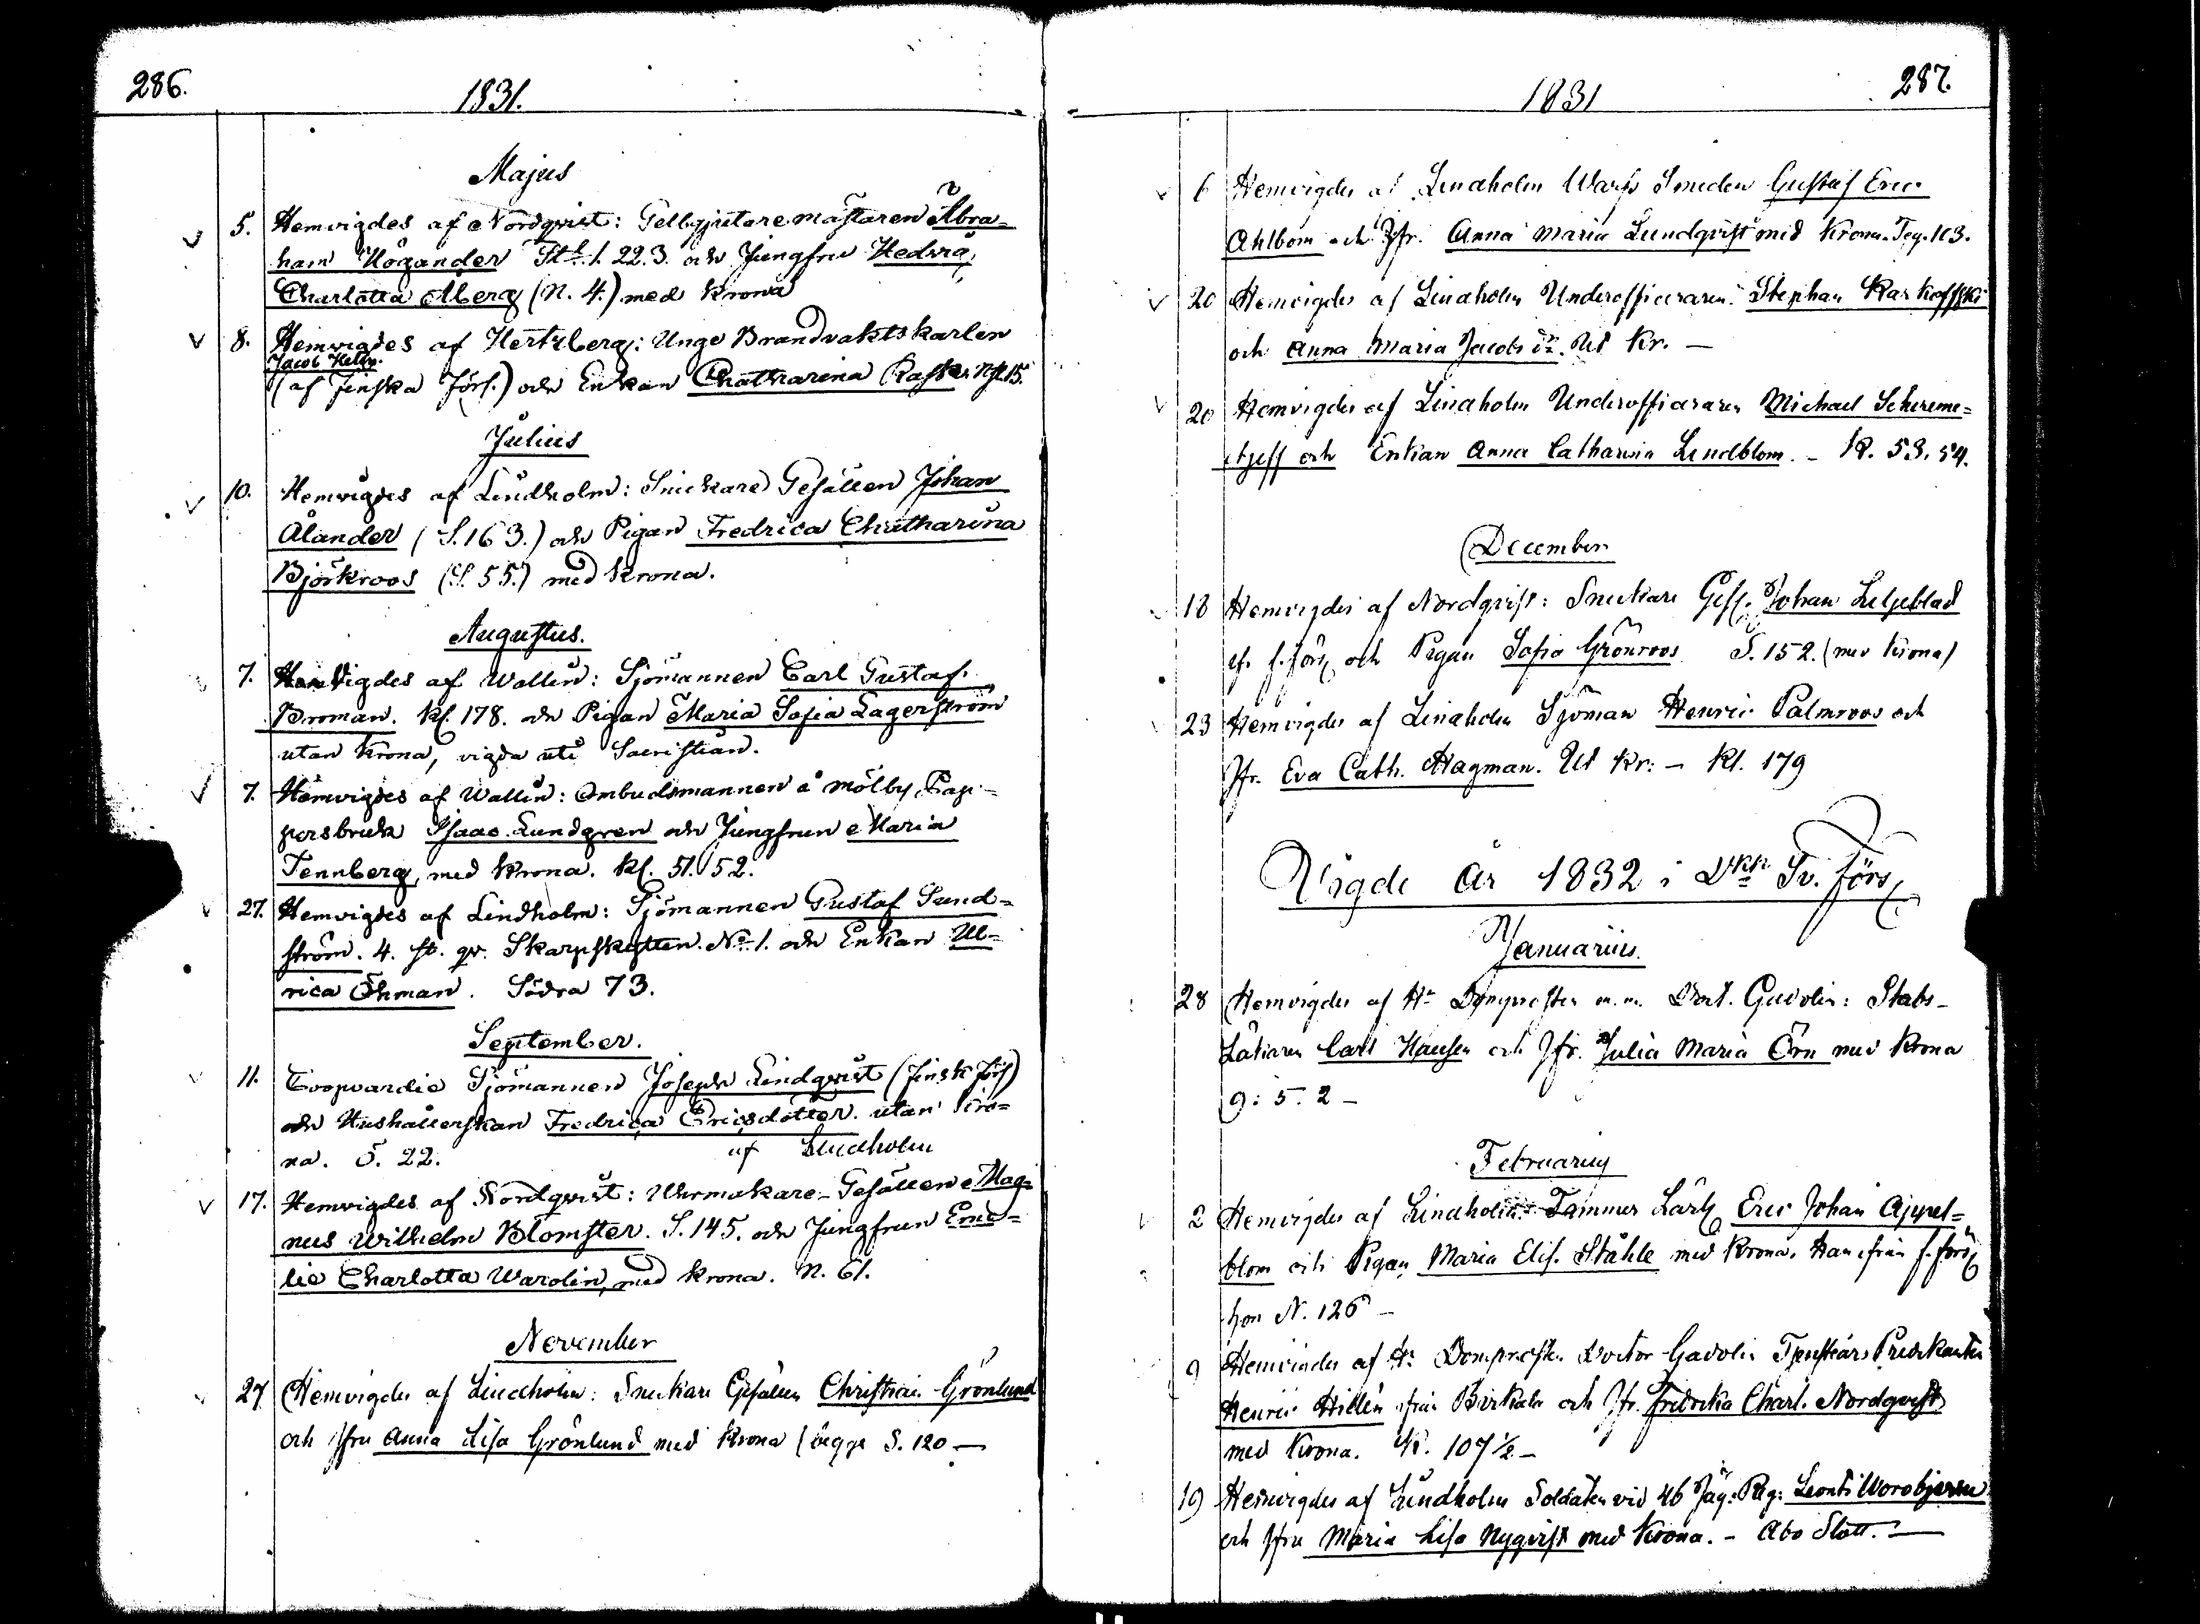 286.
1831.
Majus
5. Hemvigdes af Nordqvist: Gelbgjutare mästaren Abra-
ham Högander St. 1. 22. 3. och Jungfru Hedvig
Charlotta Åberg (N. 4.) med krona
8. Hemvigdes af Hertzberg: Unge Brandvaktskarlen
Jacob
(af Finska Förs.) och Enkan Chatharina Rask
Julius
10. Hemvigdes af Lindholm: Snickare Gesällen Johan
Ålander (S. 163.) och Pigan Fredrica Chatharina
Björkroos (S. 55.) med krona.
Augustus.
7. Hemvigdes af Wallin: Sjömannen Carl Gustaf
Broman. Kl. 178. och Pigan Maria Sofia Lagerström
utan krona, vigda uti Sacristian.
7. Hemvigdes af Wallin: Ombudsmannen å mölby Pap-
persbruk Isaac Lundgren och Jungfrun Maria
Tennberg, med krona. Kl. 51. 52.
27. Hemvigdes af Lindholm: Sjömannen Gustaf Sund-
ström. 4. st. qv. Skarpskytten. No 1. och Enkan Ul-
rica Öhman. Södra 73.
September.
11. Coopvardie Sjömannen Joseph Lindqvist (finsk förs)
och Hushållerskan Fredrica Ericsdotter. utan kro-
na. S. 22. af Lindholm
17. Hemvigdes af Nordqvist: Urmakare-Gesällen Mag-
nus Wilhelm Blomster. S. 145. och Jungfrun Emi-
lie Charlotta Warolin, med krona. N. 61.
November
27 Hemvigdes af Lindholm: Snickare Gesällen Christian Grönlund
och Jfru Anna Lisa Grönlund med krona (begge S. 120 —
1831
287.
6 Hemvigdes af Lindholm Warfs Smeden Gustaf Eric
Ahlbom och Jfr. Anna Maria Lundqvist med krona. Teg. 103.
20 Hemvigdes af Lindholm Underofficeraren Stephan Karkoffski
och Anna Maria Jacobsdr. Ut Kr. —
20 Hemvigdes af Lindholm Underofficeraren Michael Schereme-
etjeff och Enkan Anna Catharina Lindblom. - Kl. 53. 54.
December
18 Hemvigdes af Nordqvist: Snickare Ges. Johan Liljeblad
f. förs och Pigan Sofia Grönroos S. 152. (med krona)
23 Hemvigdes af Lindholm Sjöman Henric Palmroos och
Jfr. Eva Cath. Hagman. Ut Kr: — Kl. 179
Vigde år 1832 i Dkk Sv. förs
Januarius.
28 Hemvigdes af Hr Domprosten m.m. Doct. Gadolin: Stabs-
Läkaren Carl Hausen och Jfr. Julia Maria Örn med krona
9: 5. 2 —
Februarius
2 Hemvigdes af Lindholm: Timmer Lärl Eric Johan Appel-
blom och Pigan Maria Elis. Ståhle med krona, Han ifrån f. förs
hon N. 126 —
9 Hemvigdes af Hr Domprosten Doctor Gadolin Predikanten
Henric Hillén ifrån Birkala och Jfr. Fredrika Charl. Nordqvist
med krona. 107 1/2 —
19 Hemvigdes af Lindholm Soldaten vid 46 Jäg: Reg: Leonti Worobjeww
och Jfru Maria Lisa Nyqvist med krona. - Åbo Slott. —